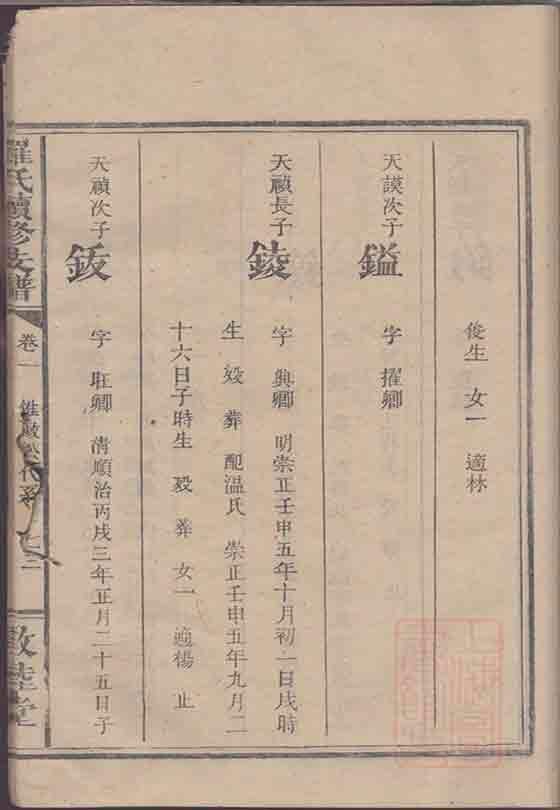 俊生 女一 適林
天謨次子 鎰 字 擢卿
天禎長子 錂 字 興卿 明崇正壬申五年十月初一日戌時
生 歿 葬 配温氏 崇正壬申五年九月二
十六日子時生 歿 葬 女一 適楊 止
天禎次子 鈑 字 卿 清順治丙戌三年正月二十五日子
羅氏續修支譜 卷一 代系 敦睦堂